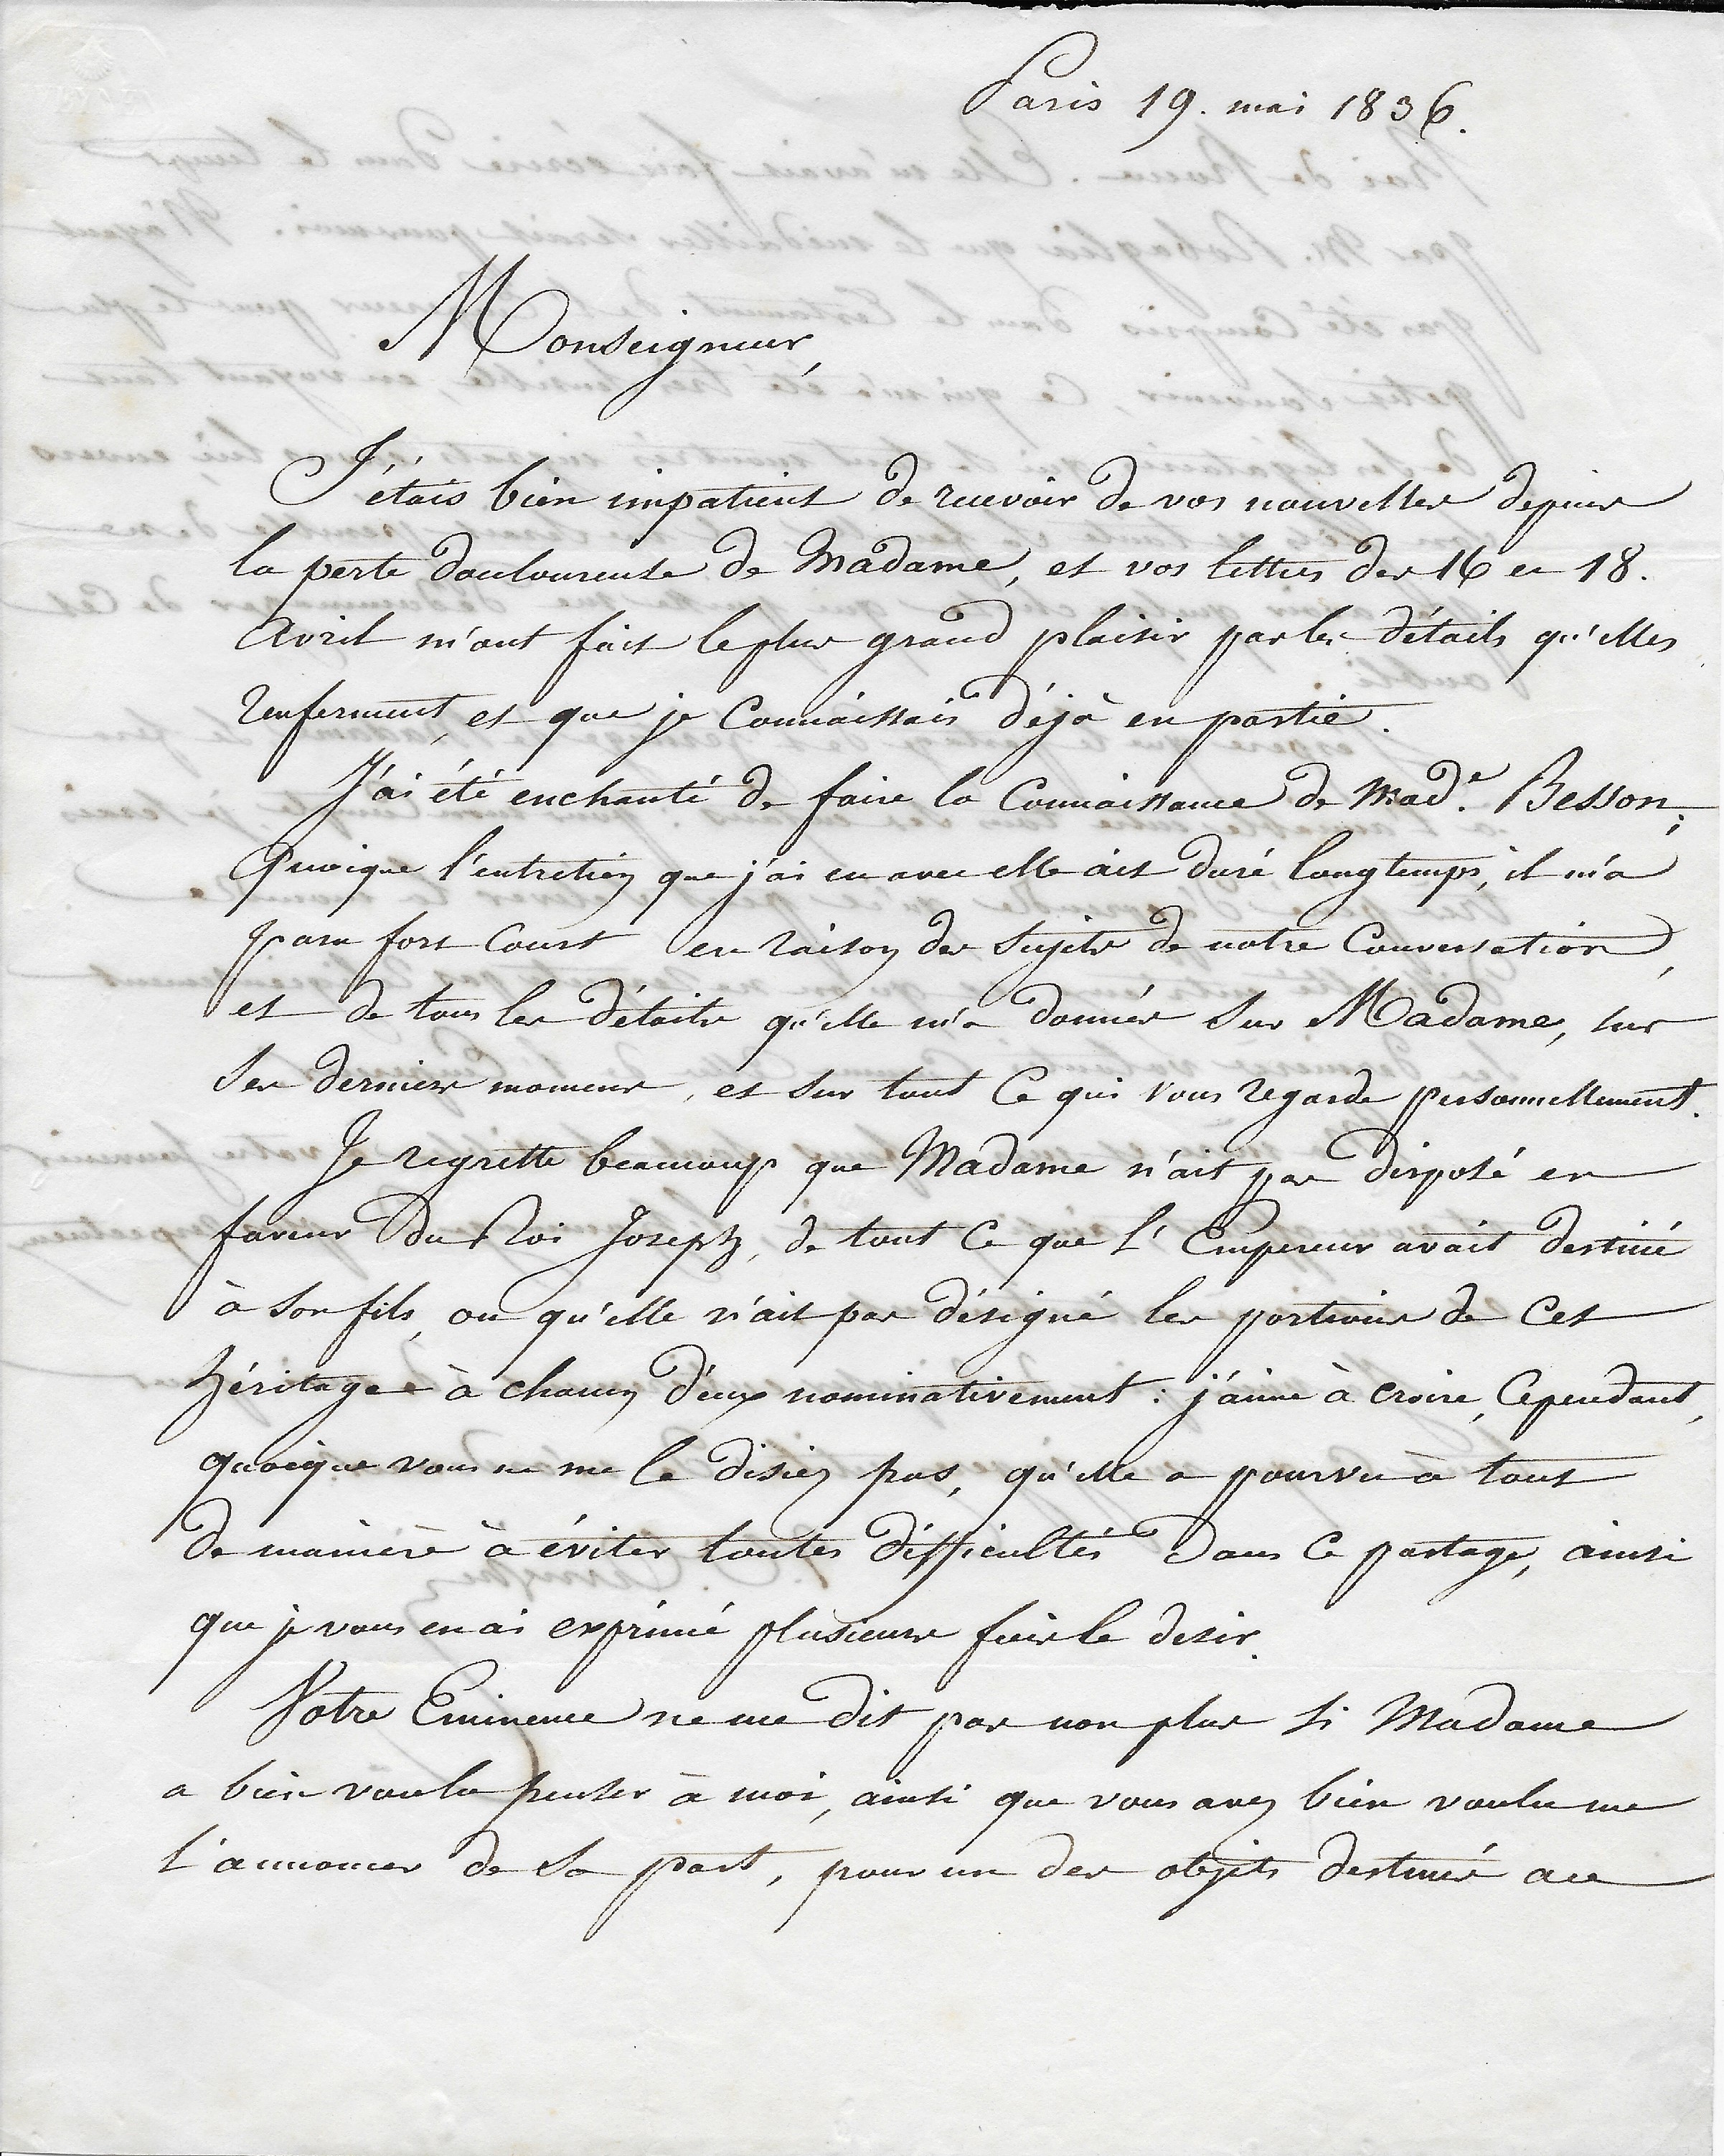 Paris 19. mai 1836.
Monseigneur,
J'étais bien impatient de recevoir de vos nouvelles depuis
la perte douloureuse de Madame, et vos lettres des 16 et 18.
avril m'ont fait le plus grand plaisir par les détails qu'elles
renferment, et que je connaissais déjà en partie.
J'ai été enchanté de faire la connaissance de Mad.e Besson;
quoique l'entretien que j'ai eu avec elle ait duré longtemps, il m'a
paru fort court en raison des sujets de notre conversation,
et de tous les détails qu'elle m'a donnés sur Madame, sur
ses derniers momens, et sur tout ce qui vous regarde personnellement.
Je regrette beaucoup que Madame n'ait pas disposé en
faveur du Roi Joseph, de tout ce que l'Empereur avait destiné
à son fils, ou qu'elle n'ait pas désigné les portions de cet
héritage à chacun d'eux nominativement : j'aime à croire, cependant,
quoique vous ne me le disiez pas, qu'elle a pourvu à tout
de manière à éviter toutes difficultés dans ce partage, ainsi
que je vous en ai exprimé plusieurs fois le desir.
Votre Eminence ne me dit pas non plus si Madame
a bien voulu penser à moi, ainsi que vous avez bien voulu me
l'annoncer de sa part, pour un des objets destinés au